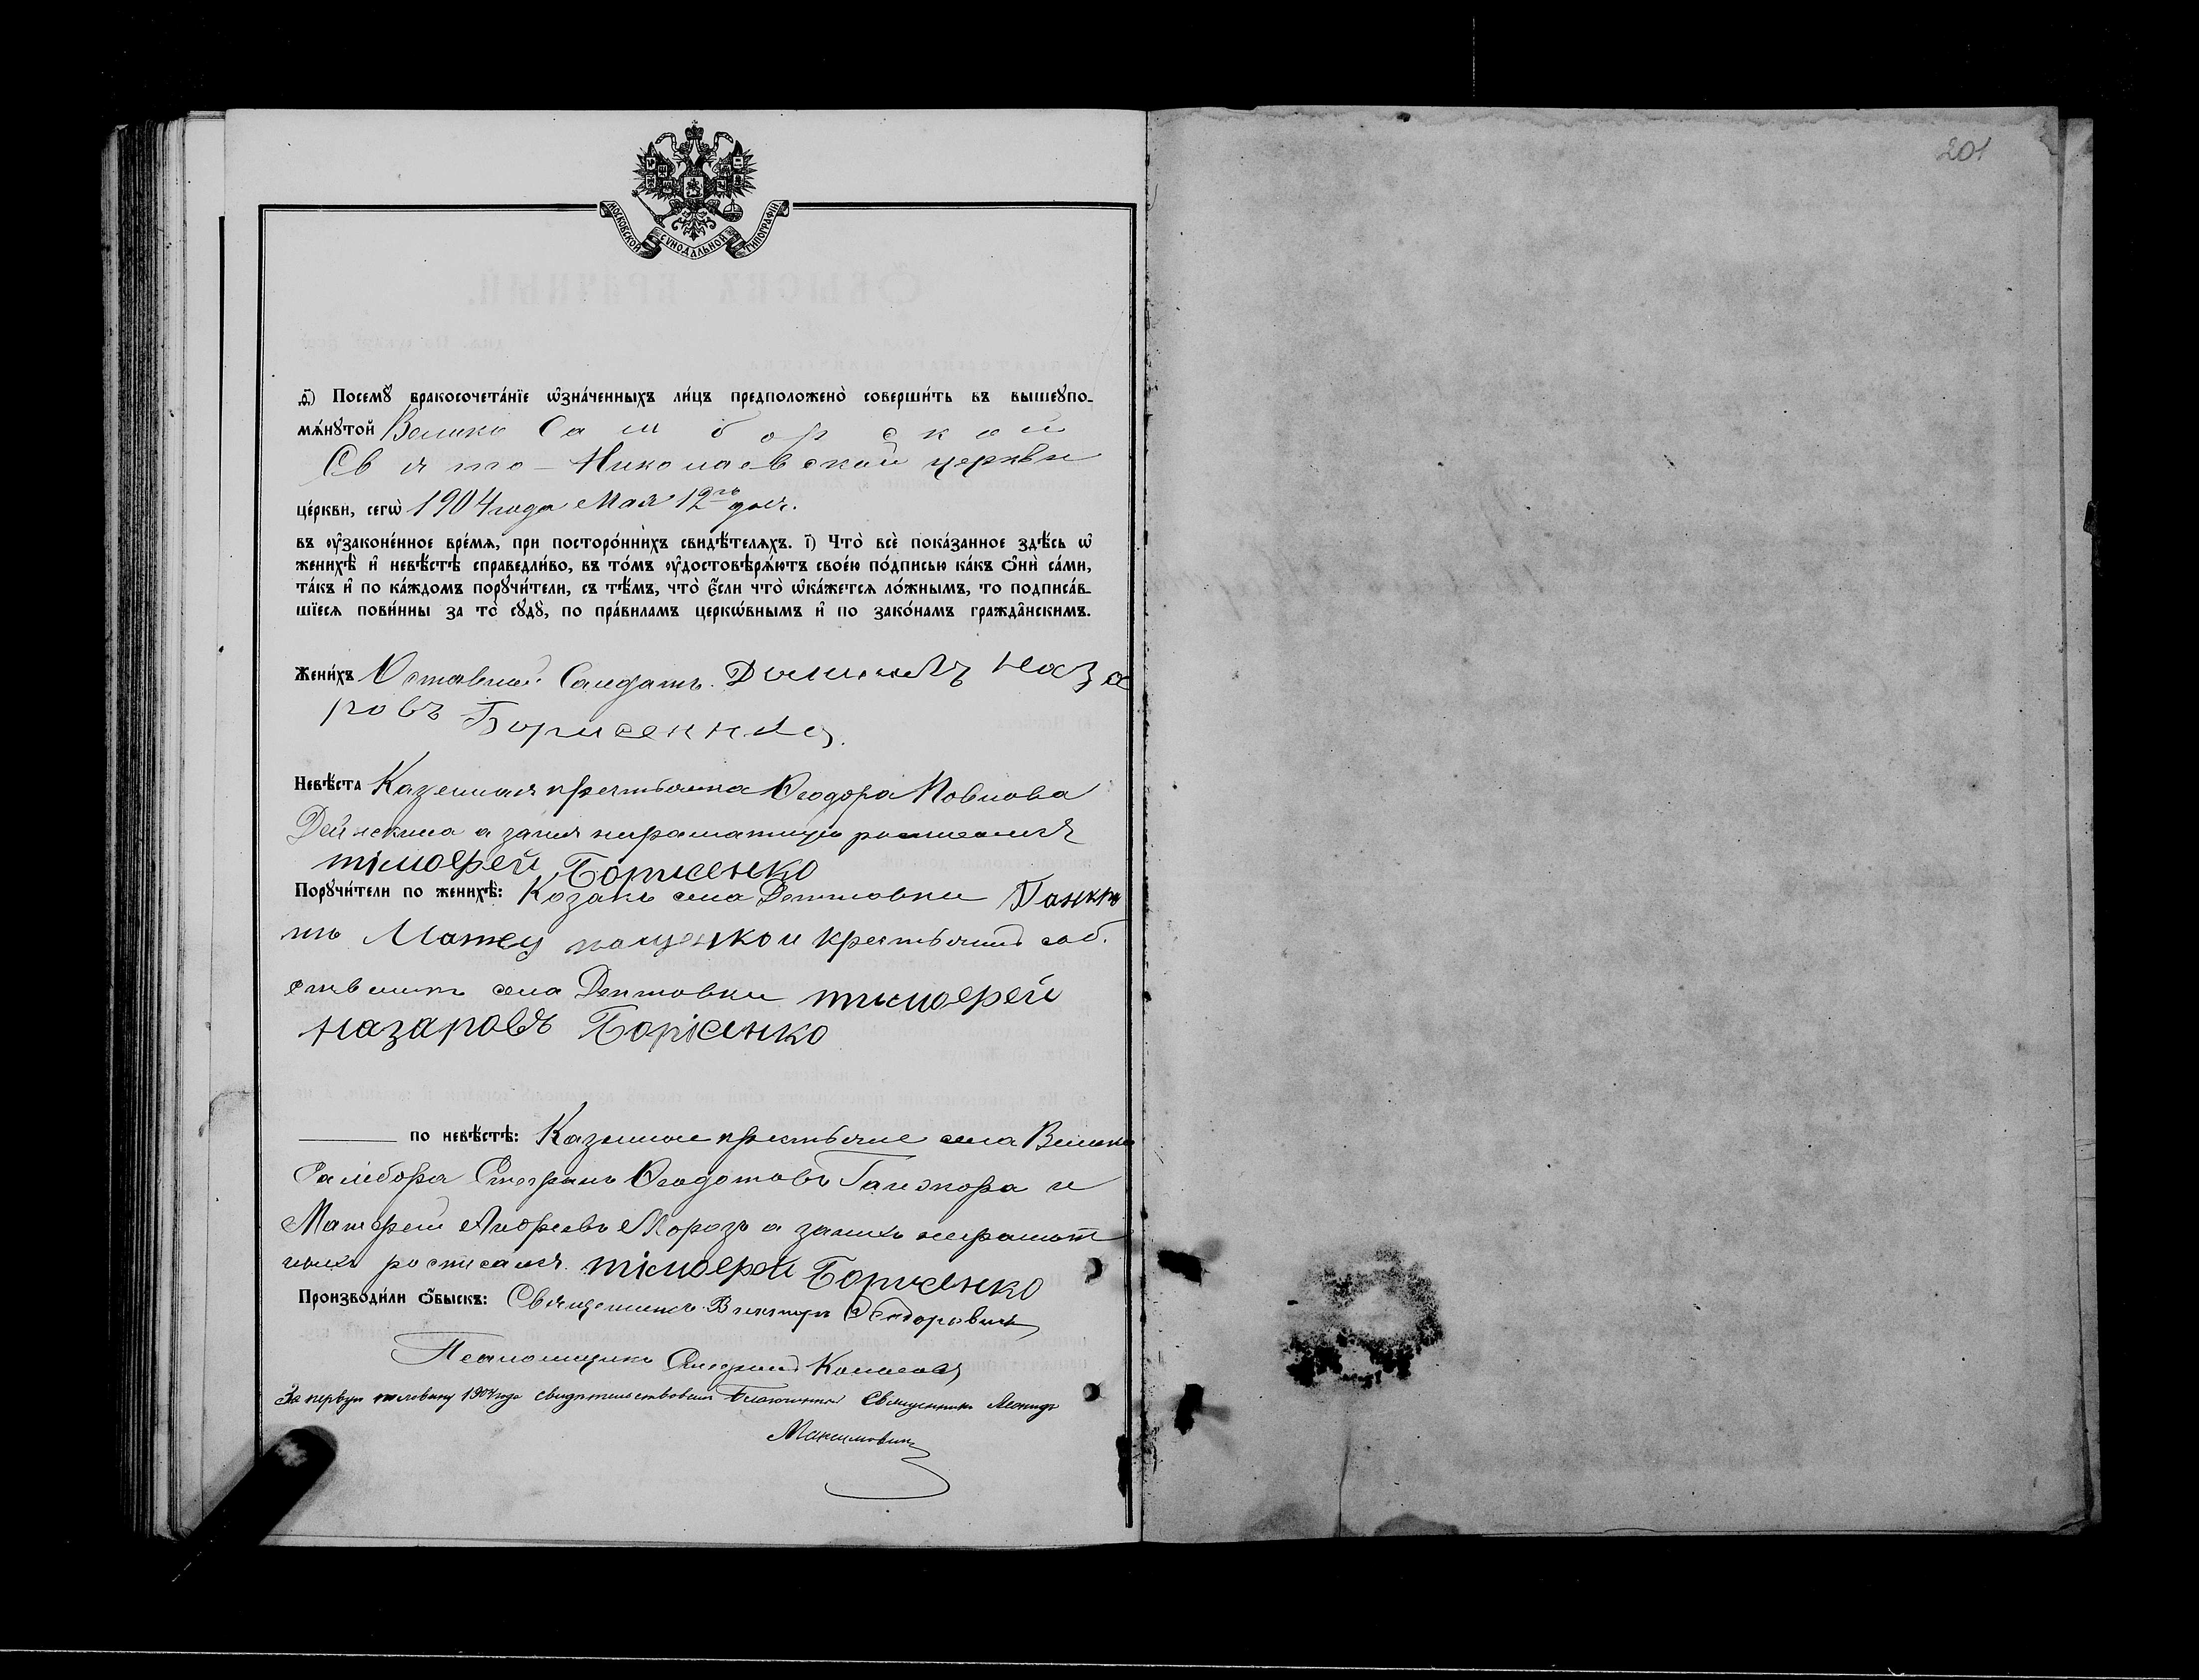 201
МОСКОВСКОЙ СѴНОДАЛЬНОЙ ТИПОГРАФІИ
Ѳ҃) Посемꙋ̀ бракосочета́нїе ѡ҆зна́ченныхъ ли́цъ предположено̀ соверши́ть въ вышеꙋпо-
мѧ́нꙋтой Велико Самборской
Свято-Николаевской церкви
це́ркви, сегѡ̀ 1904 года Мая 12го дня.
въ ᲂу҆законе́нное вре́мѧ, при посторо́ннихъ свидѣ́телѧхъ. і҃) Что̀ всѐ пока́занное здѣ́сь ѡ҆
женихѣ̀ и҆ невѣ́стѣ справедли́во, въ то́мъ ᲂу҆достовѣрѧ́ютъ свое́ю по́дписью ка́къ ѻ҆нѝ са́ми,
та́къ и҆ по ка́ждомъ порꙋчи́тели, съ тѣ́мъ, что̀ є҆́сли что̀ ѡ҆ка́жетсѧ ло́жнымъ, то подписа́в-
шїесѧ пови́нны за то̀ сꙋдꙋ̀, по пра́виламъ церкѡ́внымъ и҆ по зако́намъ гражда̂нскимъ.
Жени́хъ Отставной Салдатъ Наза
ровъ Борисенко
Невѣ́ста Казенная крестьянка Ѳеодора
а занея неграматную
тімофей Борисенко
Порꙋчи́тели по женихѣ̀: Козакъ села Дептовки
Матвей и крестьянинъ соб.
ственникъ села Дептовки тимофей
назаровъ Борісенко
по невѣ́стѣ: Казенные крестьяне села Велико
Самбора Стефанъ Ѳеодотовъ и
Матфей Андреевъ Морозъ а занихъ неграмот
ныхъ росписался тімофей Борисенко
Произво́дили ѻ҆́быскъ: Священникъ Викторъ
Псаломщикъ
За первую половину 1904 года свидѣтельствовалъ Благочинный Священникъ Леонидъ
Максимовичъ